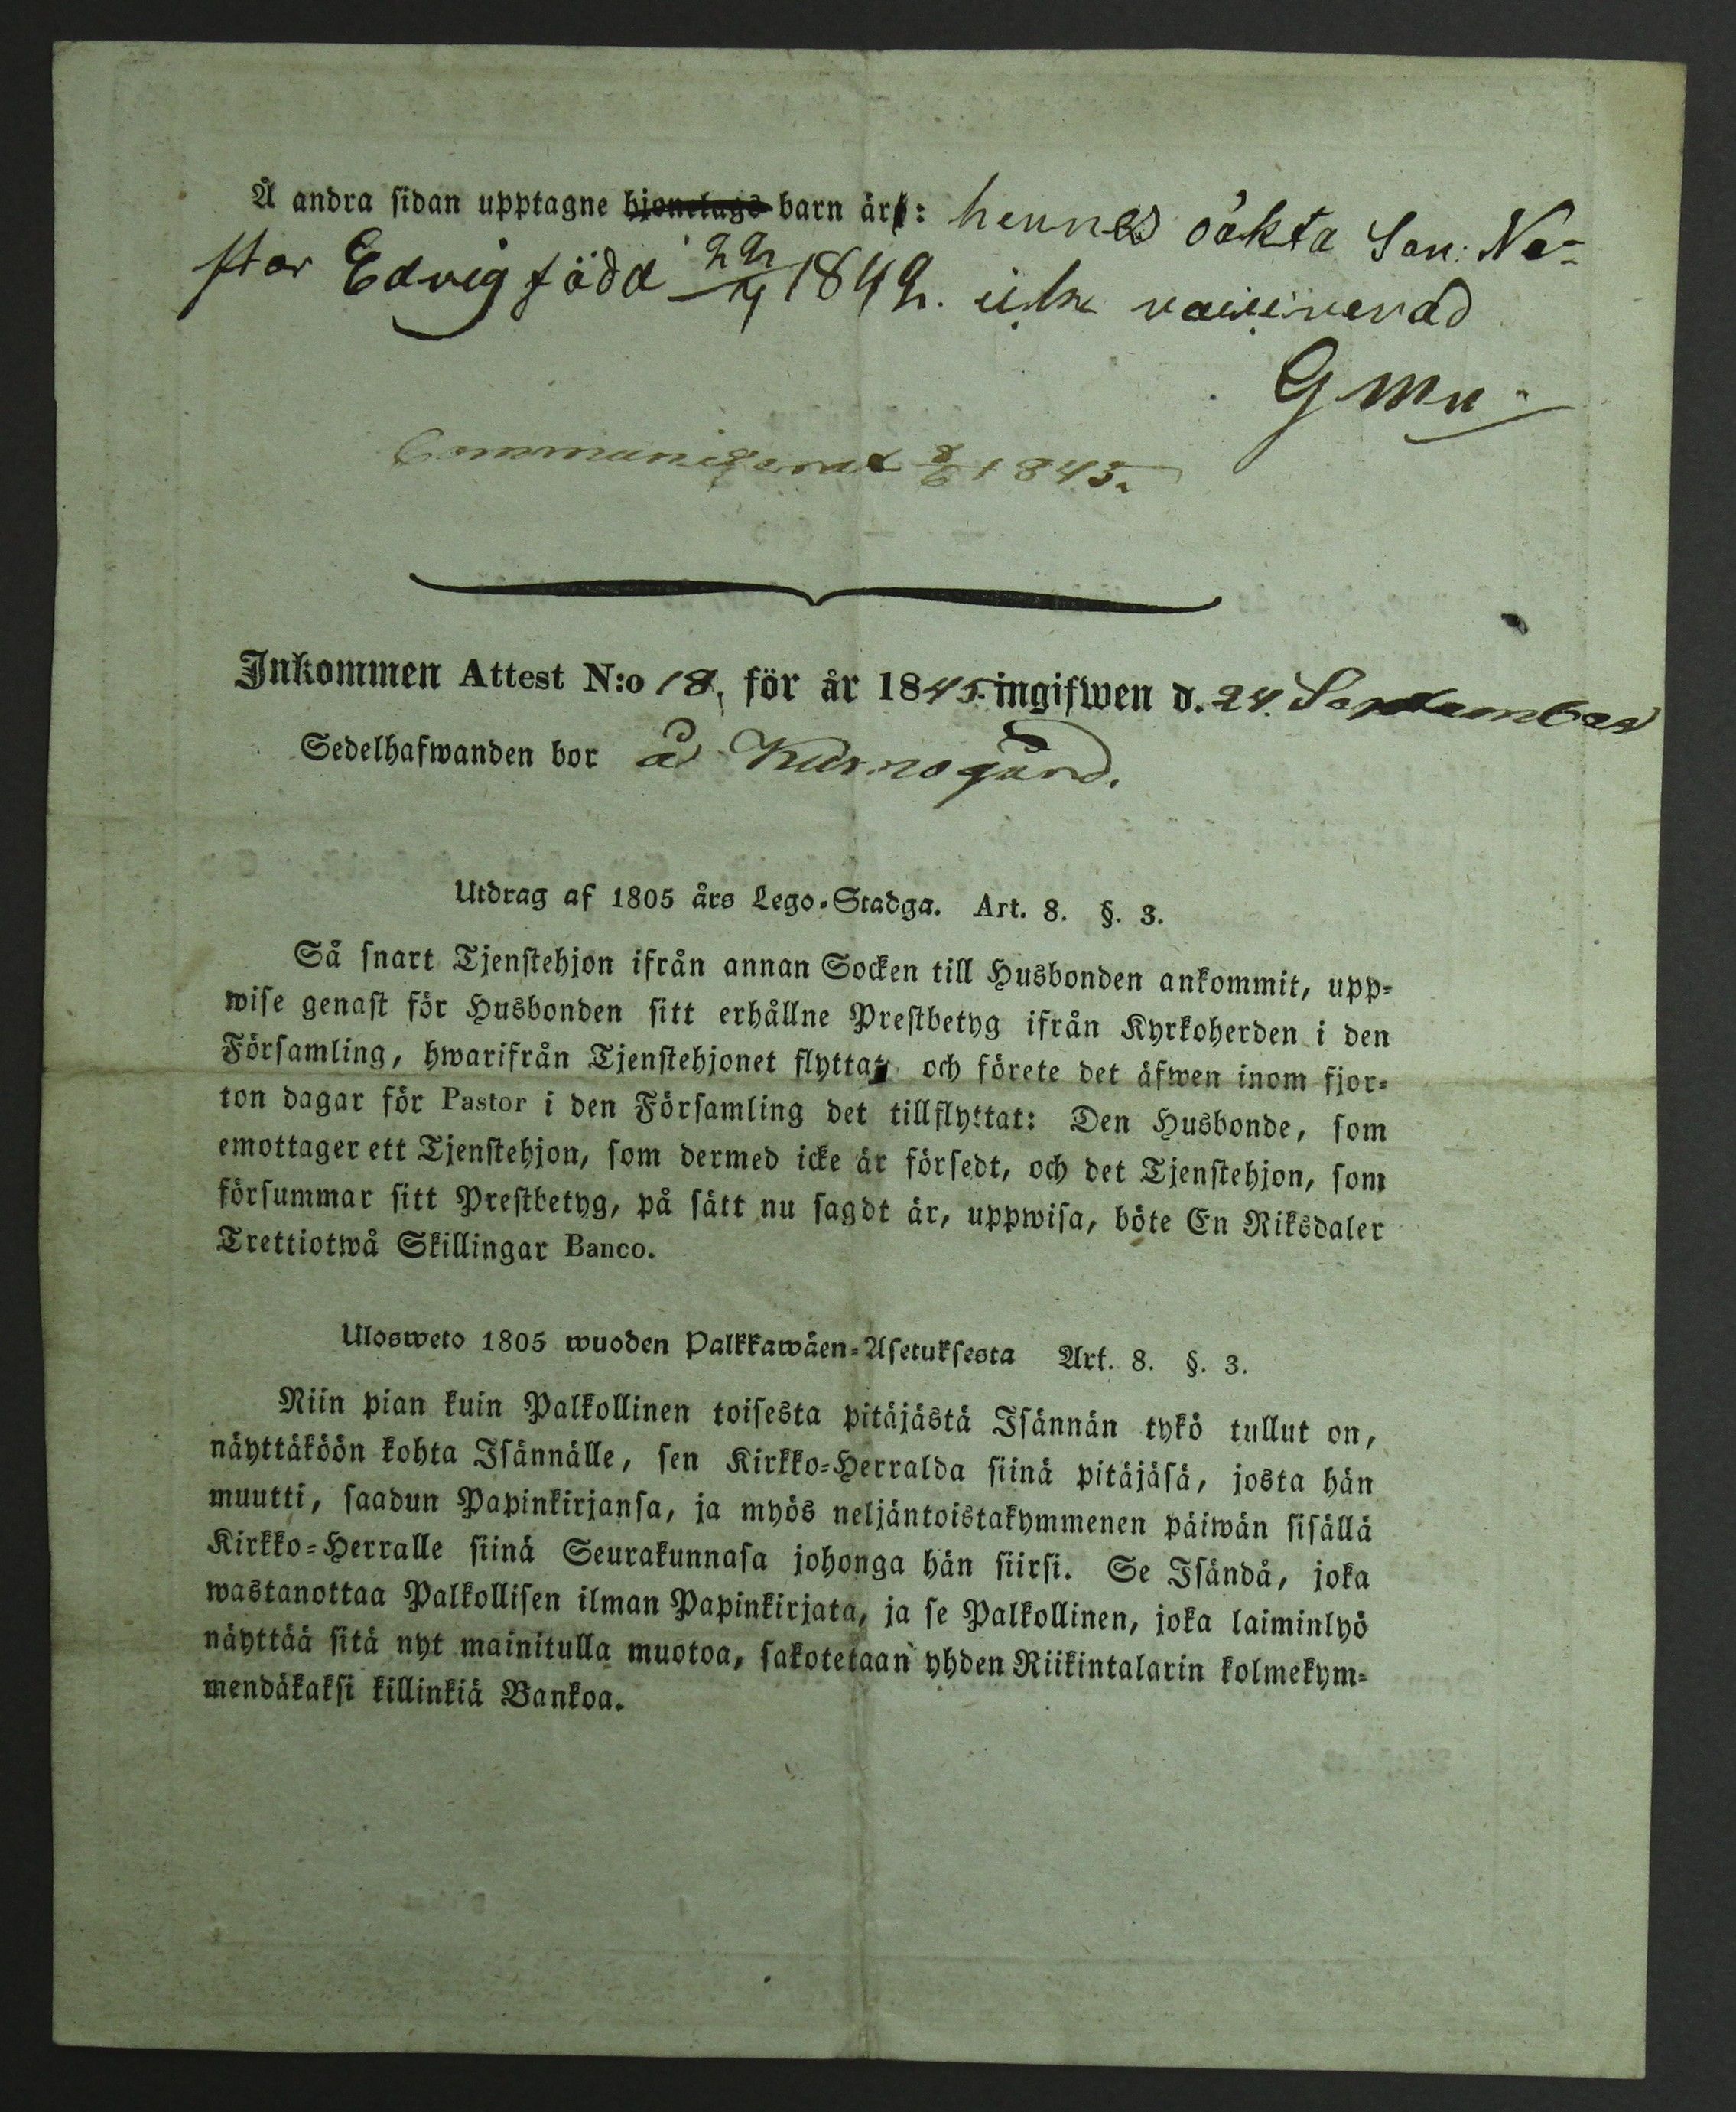 Å andra sidan upptagne hjonelags barn är: hennes oäkta Son: Ne-
stor Edvig född 22/4 1842. icke vaccinerad
GMn
Communicerat 8/6 1845.
Inkommen Attest N:o 18, för år 1845. ingifwen d. 24. September
Sedelhafwanden bor å Kurnogård.
Utdrag af 1805 års Lego-Stadga. Art. 8. §. 3.
Så snart Tjenstehjon ifrån annan Socken till Husbonden ankommit, upp-
wise genast för Husbonden sitt erhållne Prestbetyg ifrån Kyrkoherden i den
Församling, hwarifrån Tjenstehjonet flyttat, och förete det äfwen inom fjor-
ton dagar för Pastor i den Församling det tillflyttat: Den Husbonde, som
emottager ett Tjenstehjon, som dermed icke är försedt, och det Tjenstehjon, som
försummar sitt Prestbetyg, på sätt nu sagdt är, uppwisa, böte En Riksdaler
Trettiotwå Skillingar Banco.
Ulosweto 1805 wuoden Palkkawäen-Asetuksesta Art. 8. §. 3.
Niin pian kuin Palkollinen toisesta pitäjästä Isännän tykö tullut on,
näyttäköön kohta Isännälle, sen Kirkko-Herralda siinä pitäjäsä, josta hän
muutti, saadun Papinkirjansa, ja myös neljäntoistakymmenen päiwän sisällä
Kirkko-Herralle siinä Seurakunnasa johonga hän siirsi. Se Isändä, joka
wastanottaa Palkollisen ilman Papinkirjata, ja se Palkollinen, joka laiminlyö
näyttää sitä nyt mainitulla muotoa, sakotetaan yhden Riikintalarin kolmekym-
mendäkaksi killinkiä Bankoa.